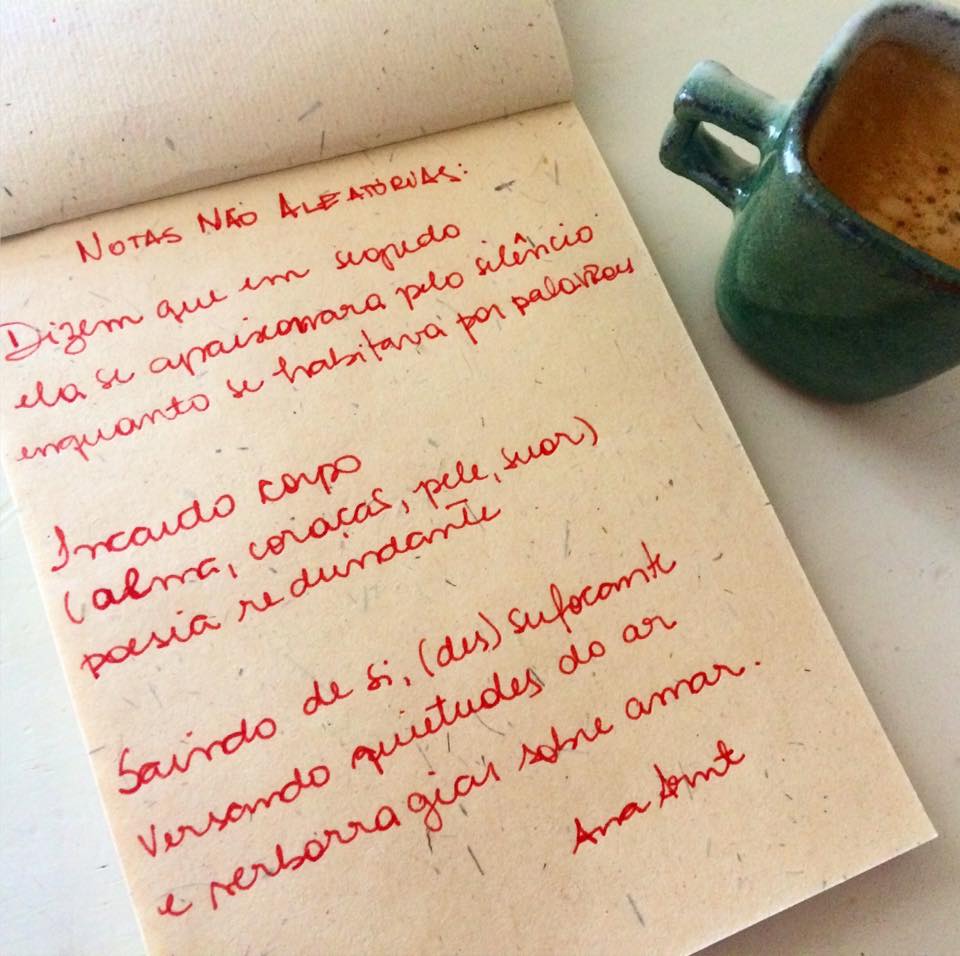 NOTAS NÃO ALEATÓRIAS:
Dizem que em segredo
ela se apaixonara pelo silêncio
enquanto se habitava por palavras
Incauto corpo
(alma, coraças, pele, suor)
poesia redundante
Saindo de si, (des)sufocante
Versando quietudes do ar
e verborragias sobre amar.
Ana Arnt